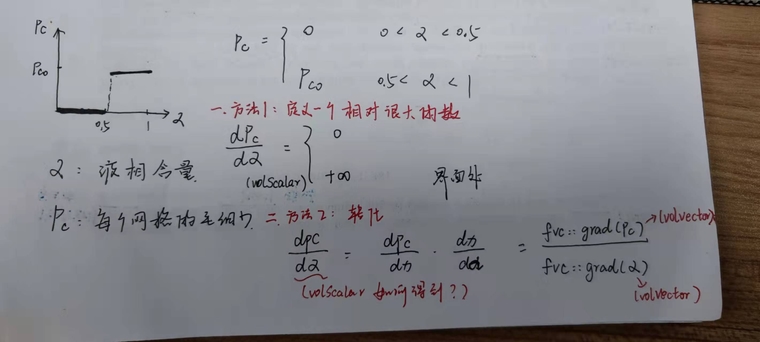 Pc
Pco
0.5 1 2
Pc = { 0 0 < 2 < 0.5
Pco 0.5 < 2 < 1
一. 方法1: 定义一个相对很大的数
dPc/d2 = { 0
(volScalar) +∞ 界面处
2: 液相含量.
Pc: 每个网格的毛细力.
二. 方法2: 转化
dpc/d2 = dpc/dn · dn/dα = fvc::grad(Pc)/fvc::grad(2)
(volvector)
(volScalar 如何得到?)
(volvector)